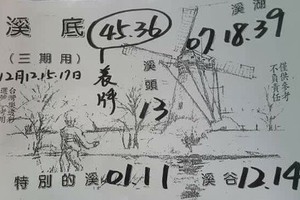 溪底
45.36
溪湖
07.18.39
(三期用)
12月12.15.17日
長牌
溪頭
13
僅供參考
不負責任
特別的溪01.11
溪谷12.14